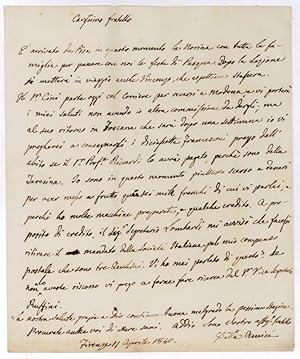 Carissimo fratello
È arrivata da Pisa in questo momento la Nerina con tutta la fa-
miglia per passare con noi le feste di Pasqua. Dopo la lezione
si metterà in viaggio anche Vincenzo che aspettiamo stasera.
Il Sr. Cini parte oggi col corriere per recarsi a Modena e vi porterà
i miei saluti non avendo io altra commissione da dargli: ma
al suo ritorno in Toscana che sarà dopo una settimana io vi
pregherei a consegnargli i diciassette francesconi prezzo dell'
se il Sr. Profr. Bianchi lo avrà pagato perchè sono della
Io sono in questo momento piuttosto scarso a denari
per aver messo a frutto quei sei mille franchi di cui vi parlai, e
perchè ho molte macchine preparate, e qualche credito. A pro-
posito di credito, il segretario Lombardi mi avvisò che facessi
ritirare il mandato della Società Italiana pel mio compenso
postale che sono tre Zecchini. Vi ho mai parlato di questo? Se
non lo avete riscosso vi prego a farne fare ricerca dal Sr. Vice Segretario
Ruffini.
La nostra salute grazie a Dio continua buona malgrado la pessima stagione
Procurate anche voi di stare sani. Addio sono Vostro affmo. fratello
Firenze 11 Aprile 1840. Amici